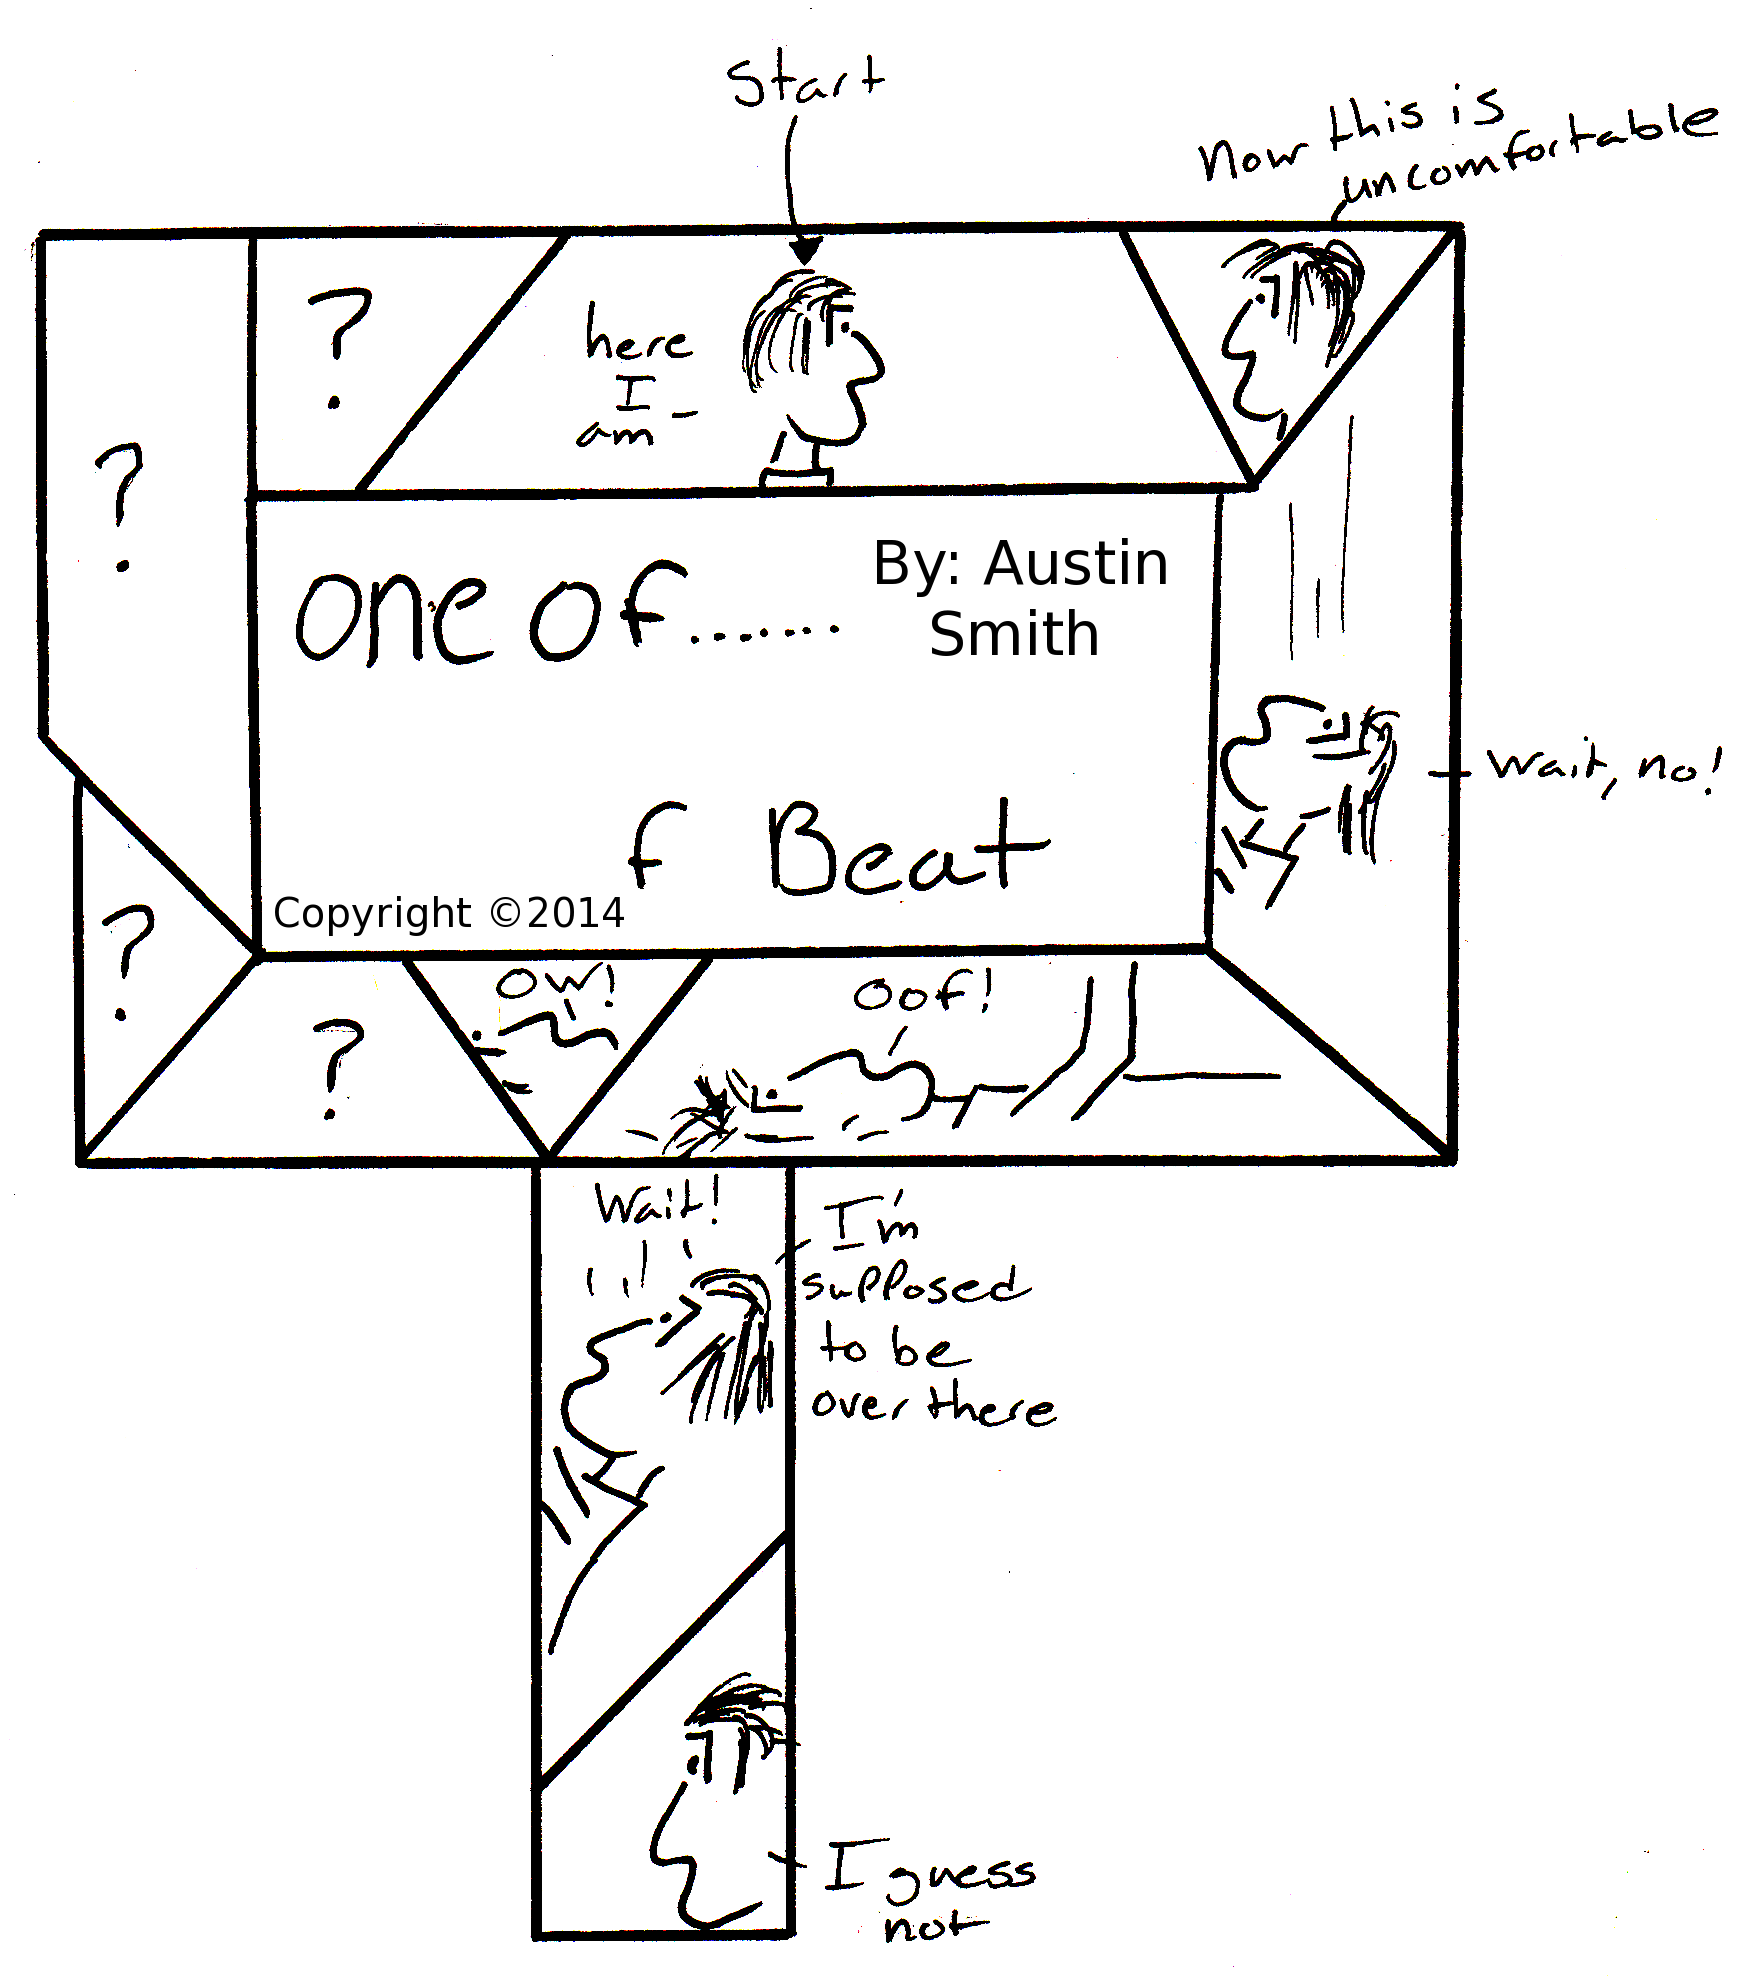 Start
Now this is
uncomfortable
?
here
I
am
?
one of.......
By: Austin
Smith
wait, no!
f Beat
Copyright ©2014
?
ow!
oof!
?
Wait!
I'm
supposed
to be
over there
I guess
not